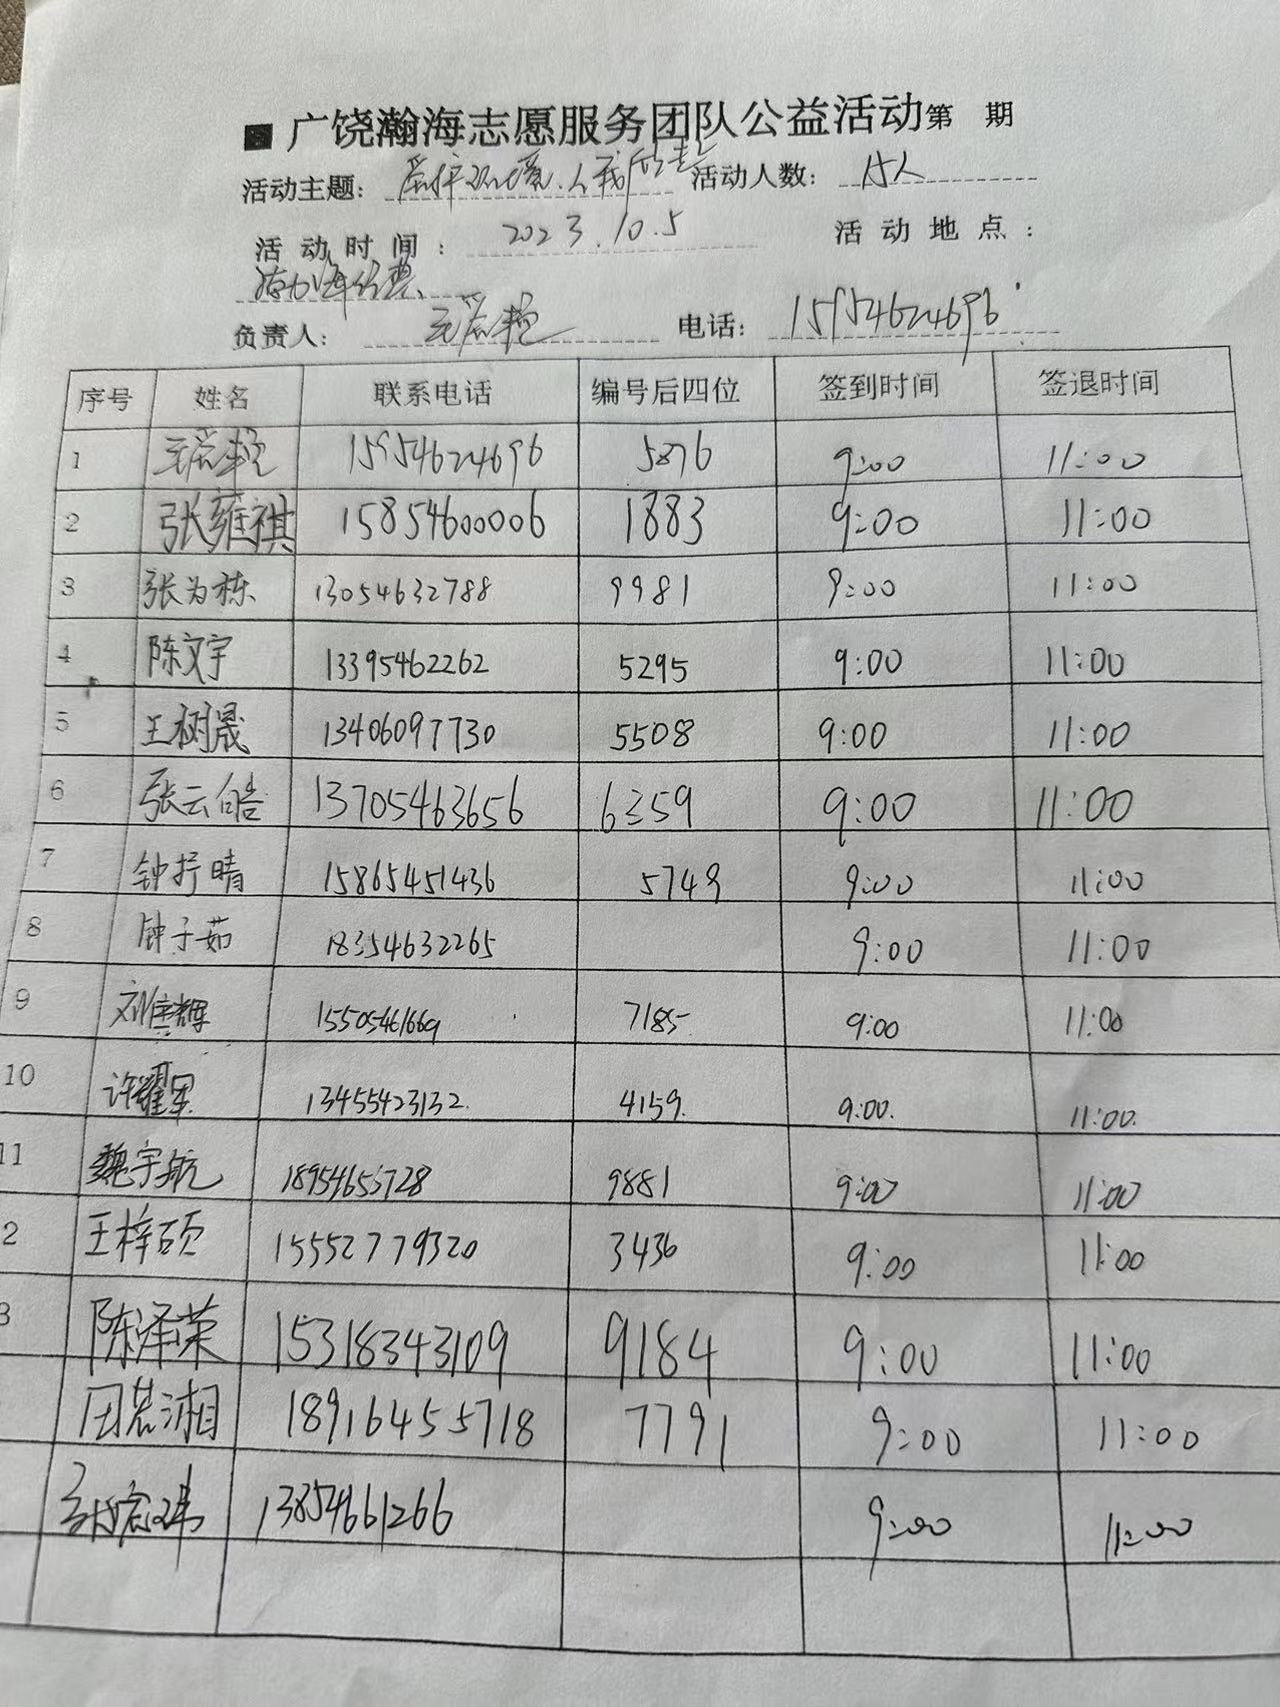 ■ 广饶瀚海志愿服务团队公益活动第 期
活动主题: 爱护环境.人我做起 活动人数: 15人
活动时间: 2023.10.5 活动地点:
负责人: 王岩艳 电话: 15954624696
序号 姓名 联系电话 编号后四位 签到时间 签退时间
1 王岩艳 15954624696 5876 9:00 11:00
2 张雍祺 15854600006 1883 9:00 11:00
3 张为栋 13054632788 9981 9:00 11:00
4 陈文宇 13395462262 5295 9:00 11:00
5 王树晟 13406097730 5508 9:00 11:00
6 张云皓 13705463656 6359 9:00 11:00
7 钟抒晴 15865451436 5749 9:00 11:00
8 钟子茹 18354632265 9:00 11:00
9 刘唐辉 15505461669 7185 9:00 11:00
10 许耀军 13455423132 4159 9:00 11:00
11 魏宇航 18954655728 9881 9:00 11:00
2 王梓硕 15552779320 3436 9:00 11:00
3 陈泽荣 15318343109 9184 9:00 11:00
田若湘 18916455718 7791 9:00 11:00
13854661266 9:00 11:00